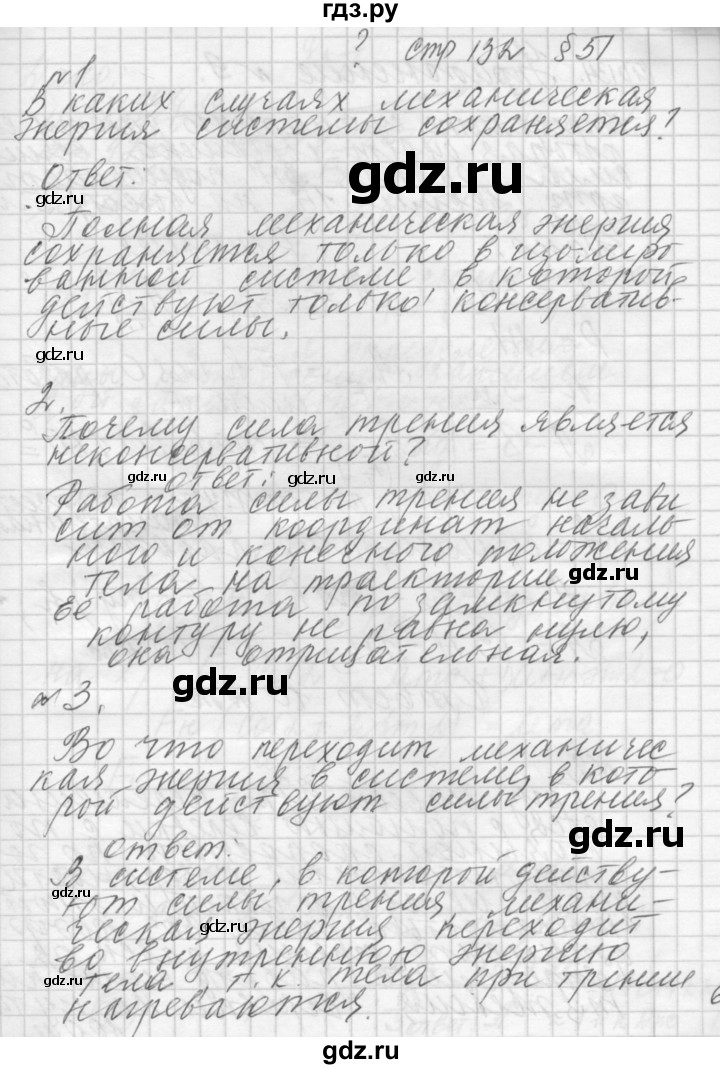 гдз.ру
? стр 132 § 51
№1
В каких случаях механическая
энергия системы сохраняется?
Ответ:
gdz.ru
gdz.ru
Полная механическая энергия
сохраняется только в изолиро
ванной системе в которой
действуют только консерватив-
ные силы.
gdz.ru
gdz.ru
2.
Почему сила трения является
неконсервативной?
gdz.ru
ответ:
gdz.ru
gdz.ru
Работа силы трения не зави
сит от координат началь
ного и конечного положения
тела на траектории.
gdz.ru
Её работа по замкнутому
контуру не равна нулю,
она отрицательная.
gdz.ru
№3.
Во что переходит механичес
кая энергия в системе, в кото
рой действуют силы трения?
ответ:
gdz.ru
В системе, в которой действу-
gdz.ru
ют силы трения механи-
ческая энергия переходит
gdz.ru
во внутреннюю энергию
gdz.ru
тела, т.к. тела при трении
нагреваются.
gdz.ru